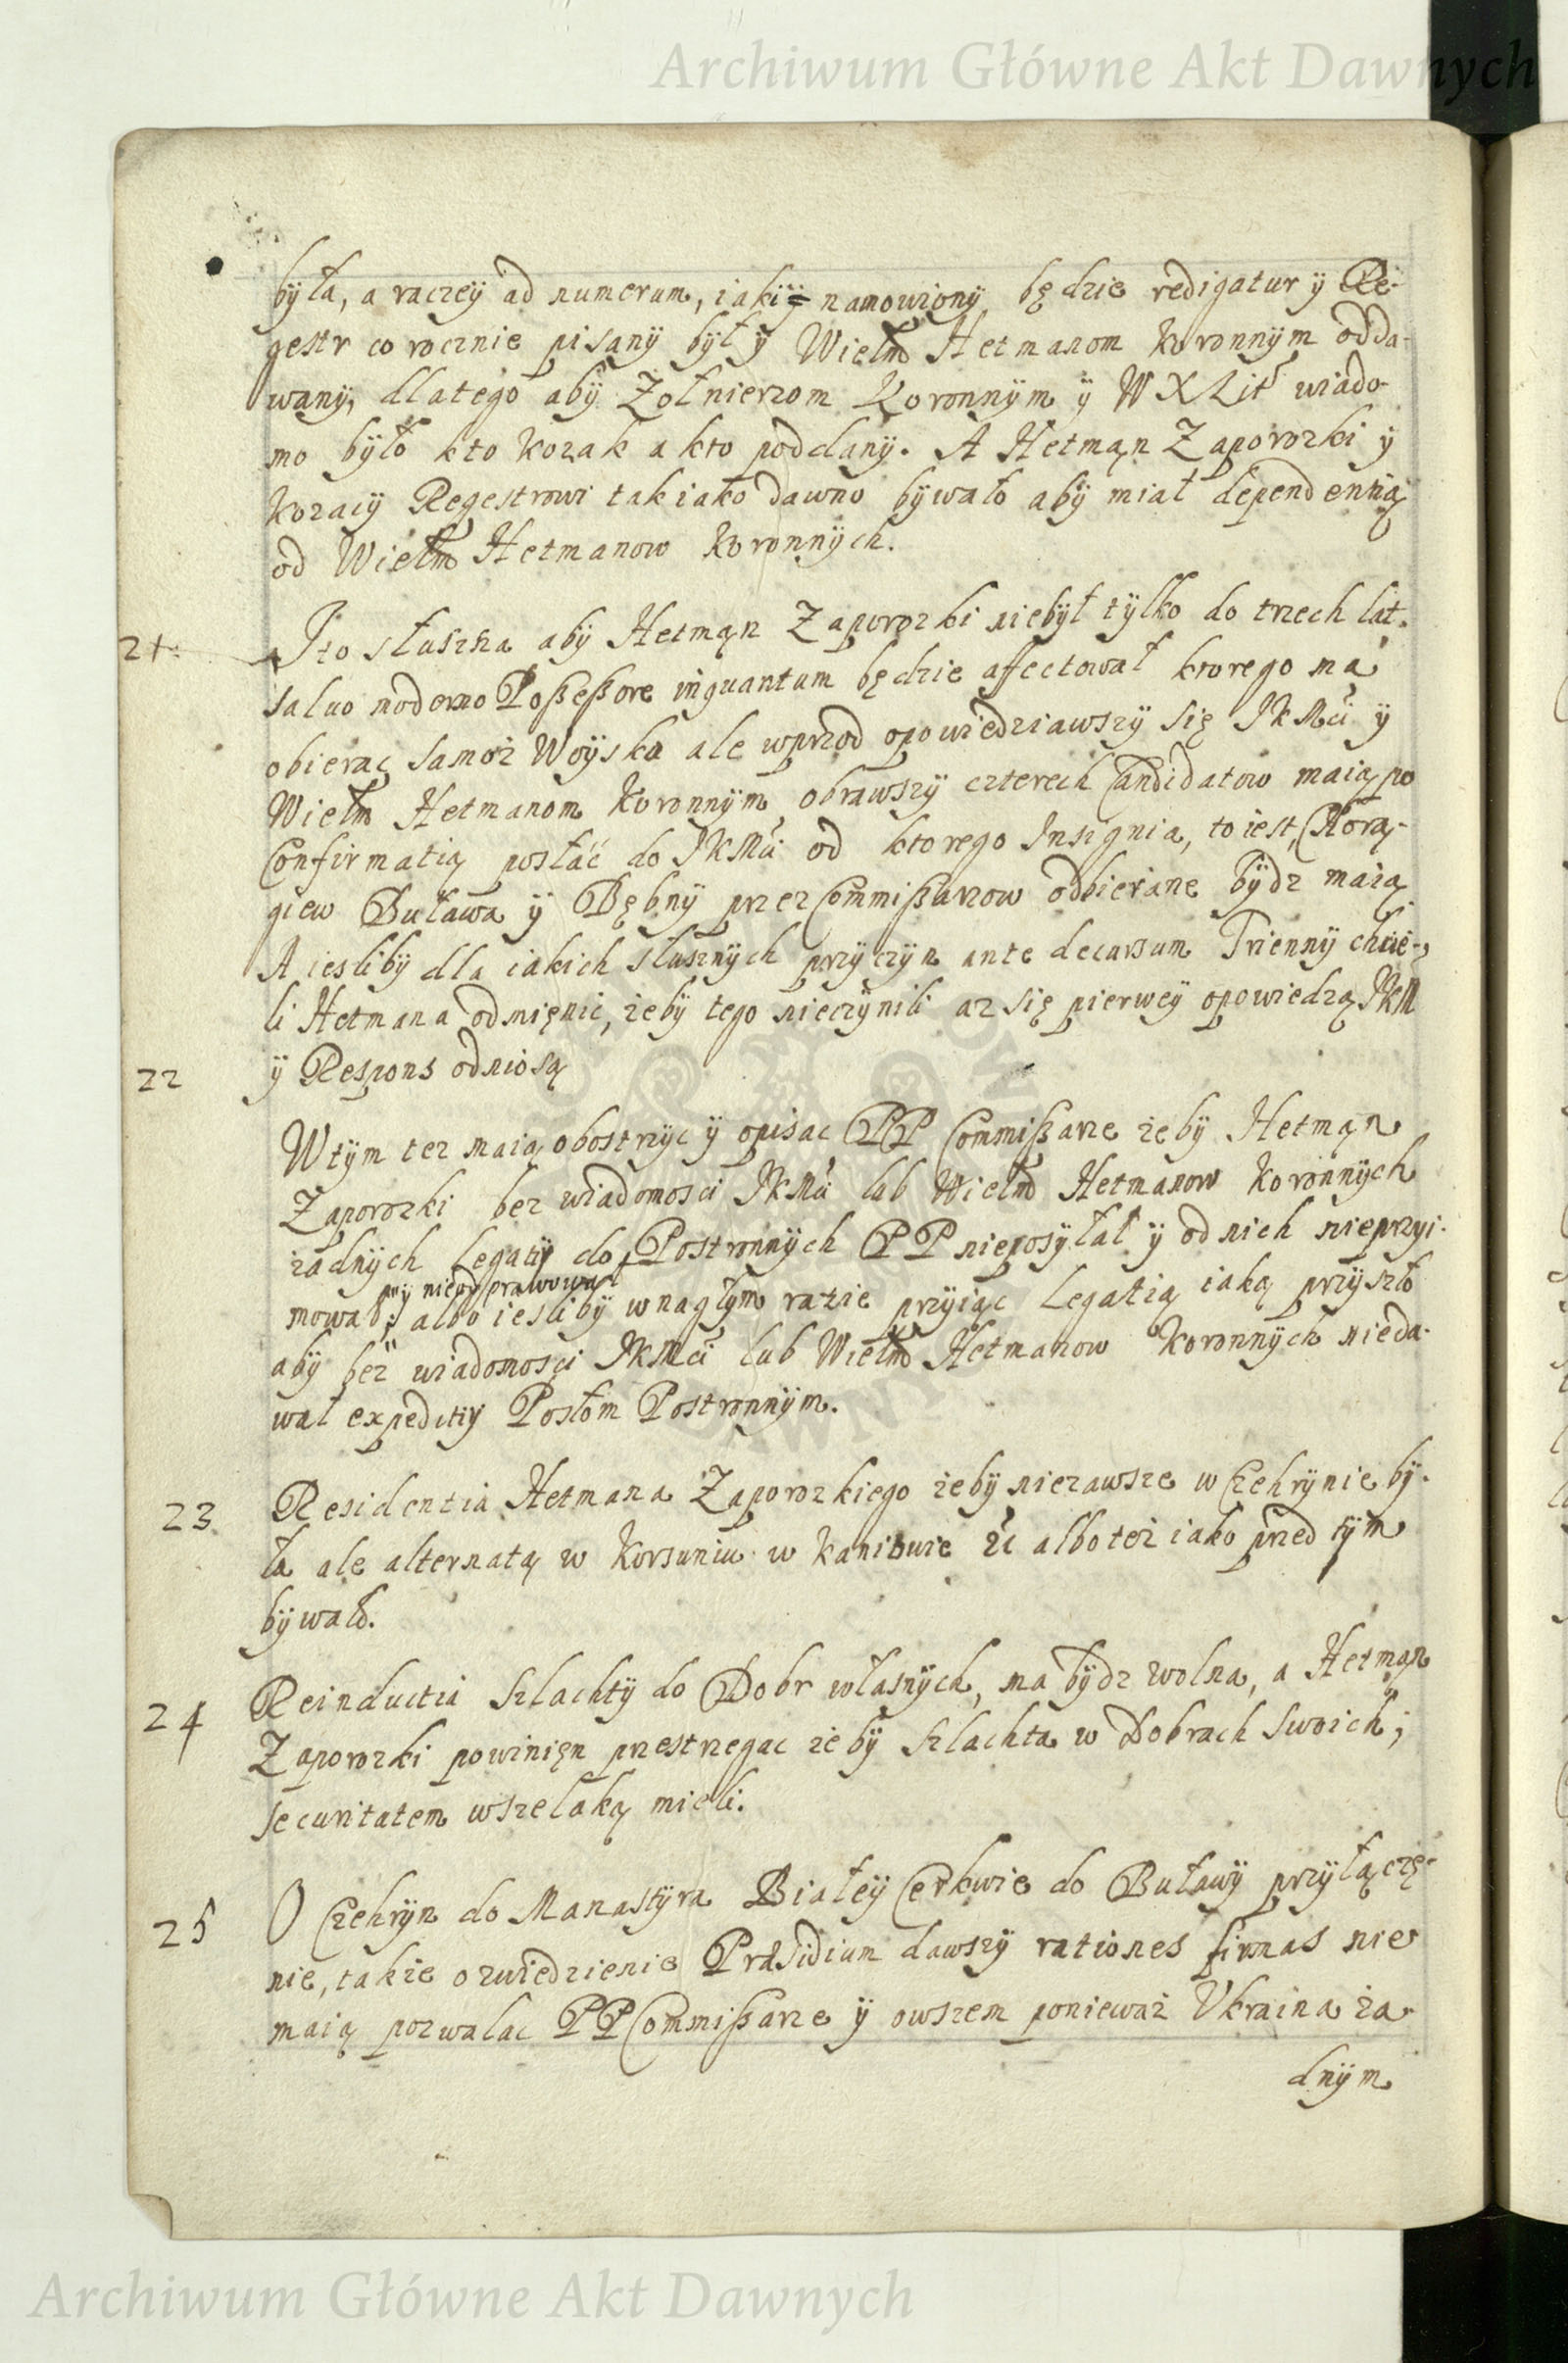 Archiwum Główne Akt Dawnych
była, a raczeÿ ad numerum, iakiÿ namowionÿ będzie redigatur ÿ Re-
gestr co rocznie pisanÿ był ÿ Wielm Hetmanom Koronnÿm odda-
wanÿ, dlatego abÿ Zołnierzom Koronnÿm ÿ W X Lit wiado-
mo było kto kozak a kto poddanÿ. A Hetmąn Zaporozki ÿ
Kozacÿ Regestrowi tak iako dawno bÿwało abÿ miał dependentią
od Wielm Hetmanow Koronnÿch.
21. I to słuszna abÿ Hetmąn Zaporozki niebÿł tÿlko do trzech lat.
salvo moderno Possessore inquantum będzie affectował ktorego ma
obierac samoż Woÿsko ale wprzod opowiedziawszÿ się JKMci ÿ
Wielm Hetmanom Koronnÿm, obrawszÿ czterech Candidatow maią po
Confirmatią posłać do JKMci od ktorego Insignia, to iest, Chorą-
giew Buława ÿ Bębnÿ przez Commissarzow odbierane bÿdz maią.
A iesliby dla iakich słusznÿch przÿczÿn ante decursum Triennÿ chcie-
li Hetmana odmięnic, żebÿ tego nieczÿnili az się pierweÿ opowiedzą JKM
22 ÿ Respons odniosą
Wtÿm tez maią obostrzÿc ÿ opisac PP Commissarze żebÿ Hetmąn
Zaporozki bez wiadomosci JKMci lub Wielm Hetmanow Koronnÿch
żadnÿch Legatiÿ do Postronnÿch PP nieposÿłał ÿ od nich nieprzyi-
mował, albo iesliby wnagłÿm razie przÿiąc Legatią iaką przÿszło
abÿ bez wiadomosci JKMci lub Wielm Hetmanow Koronnÿch nieda-
wał expeditiÿ Posłom Postronnÿm.
23 Residentia Hetmana Zaporozkiego żebÿ niezawsze w Czehrÿnie bÿ-
ła ale alternatą w Korsuniu w Kaniowie albo też iako przed tÿm
bÿwało.
24 Reinductia Szlachtÿ do Dobr własnÿch, ma bÿdz wolna, a Hetmąn
Zaporozki powinięn przestrzegac żebÿ Szlachta w Dobrach swoich;
securitatem wszelaką mieli.
25 O Czehrÿn do Manastÿra Białeÿ Cerkwie do Buławÿ przÿłączę-
nie, także ozwiedzienie Præsidium dawszÿ rationes firmas nie
maią pozwalac PP Commissarze ÿ owszem ponieważ Vkraina ża-
dnÿm
Archiwum Główne Akt Dawnych